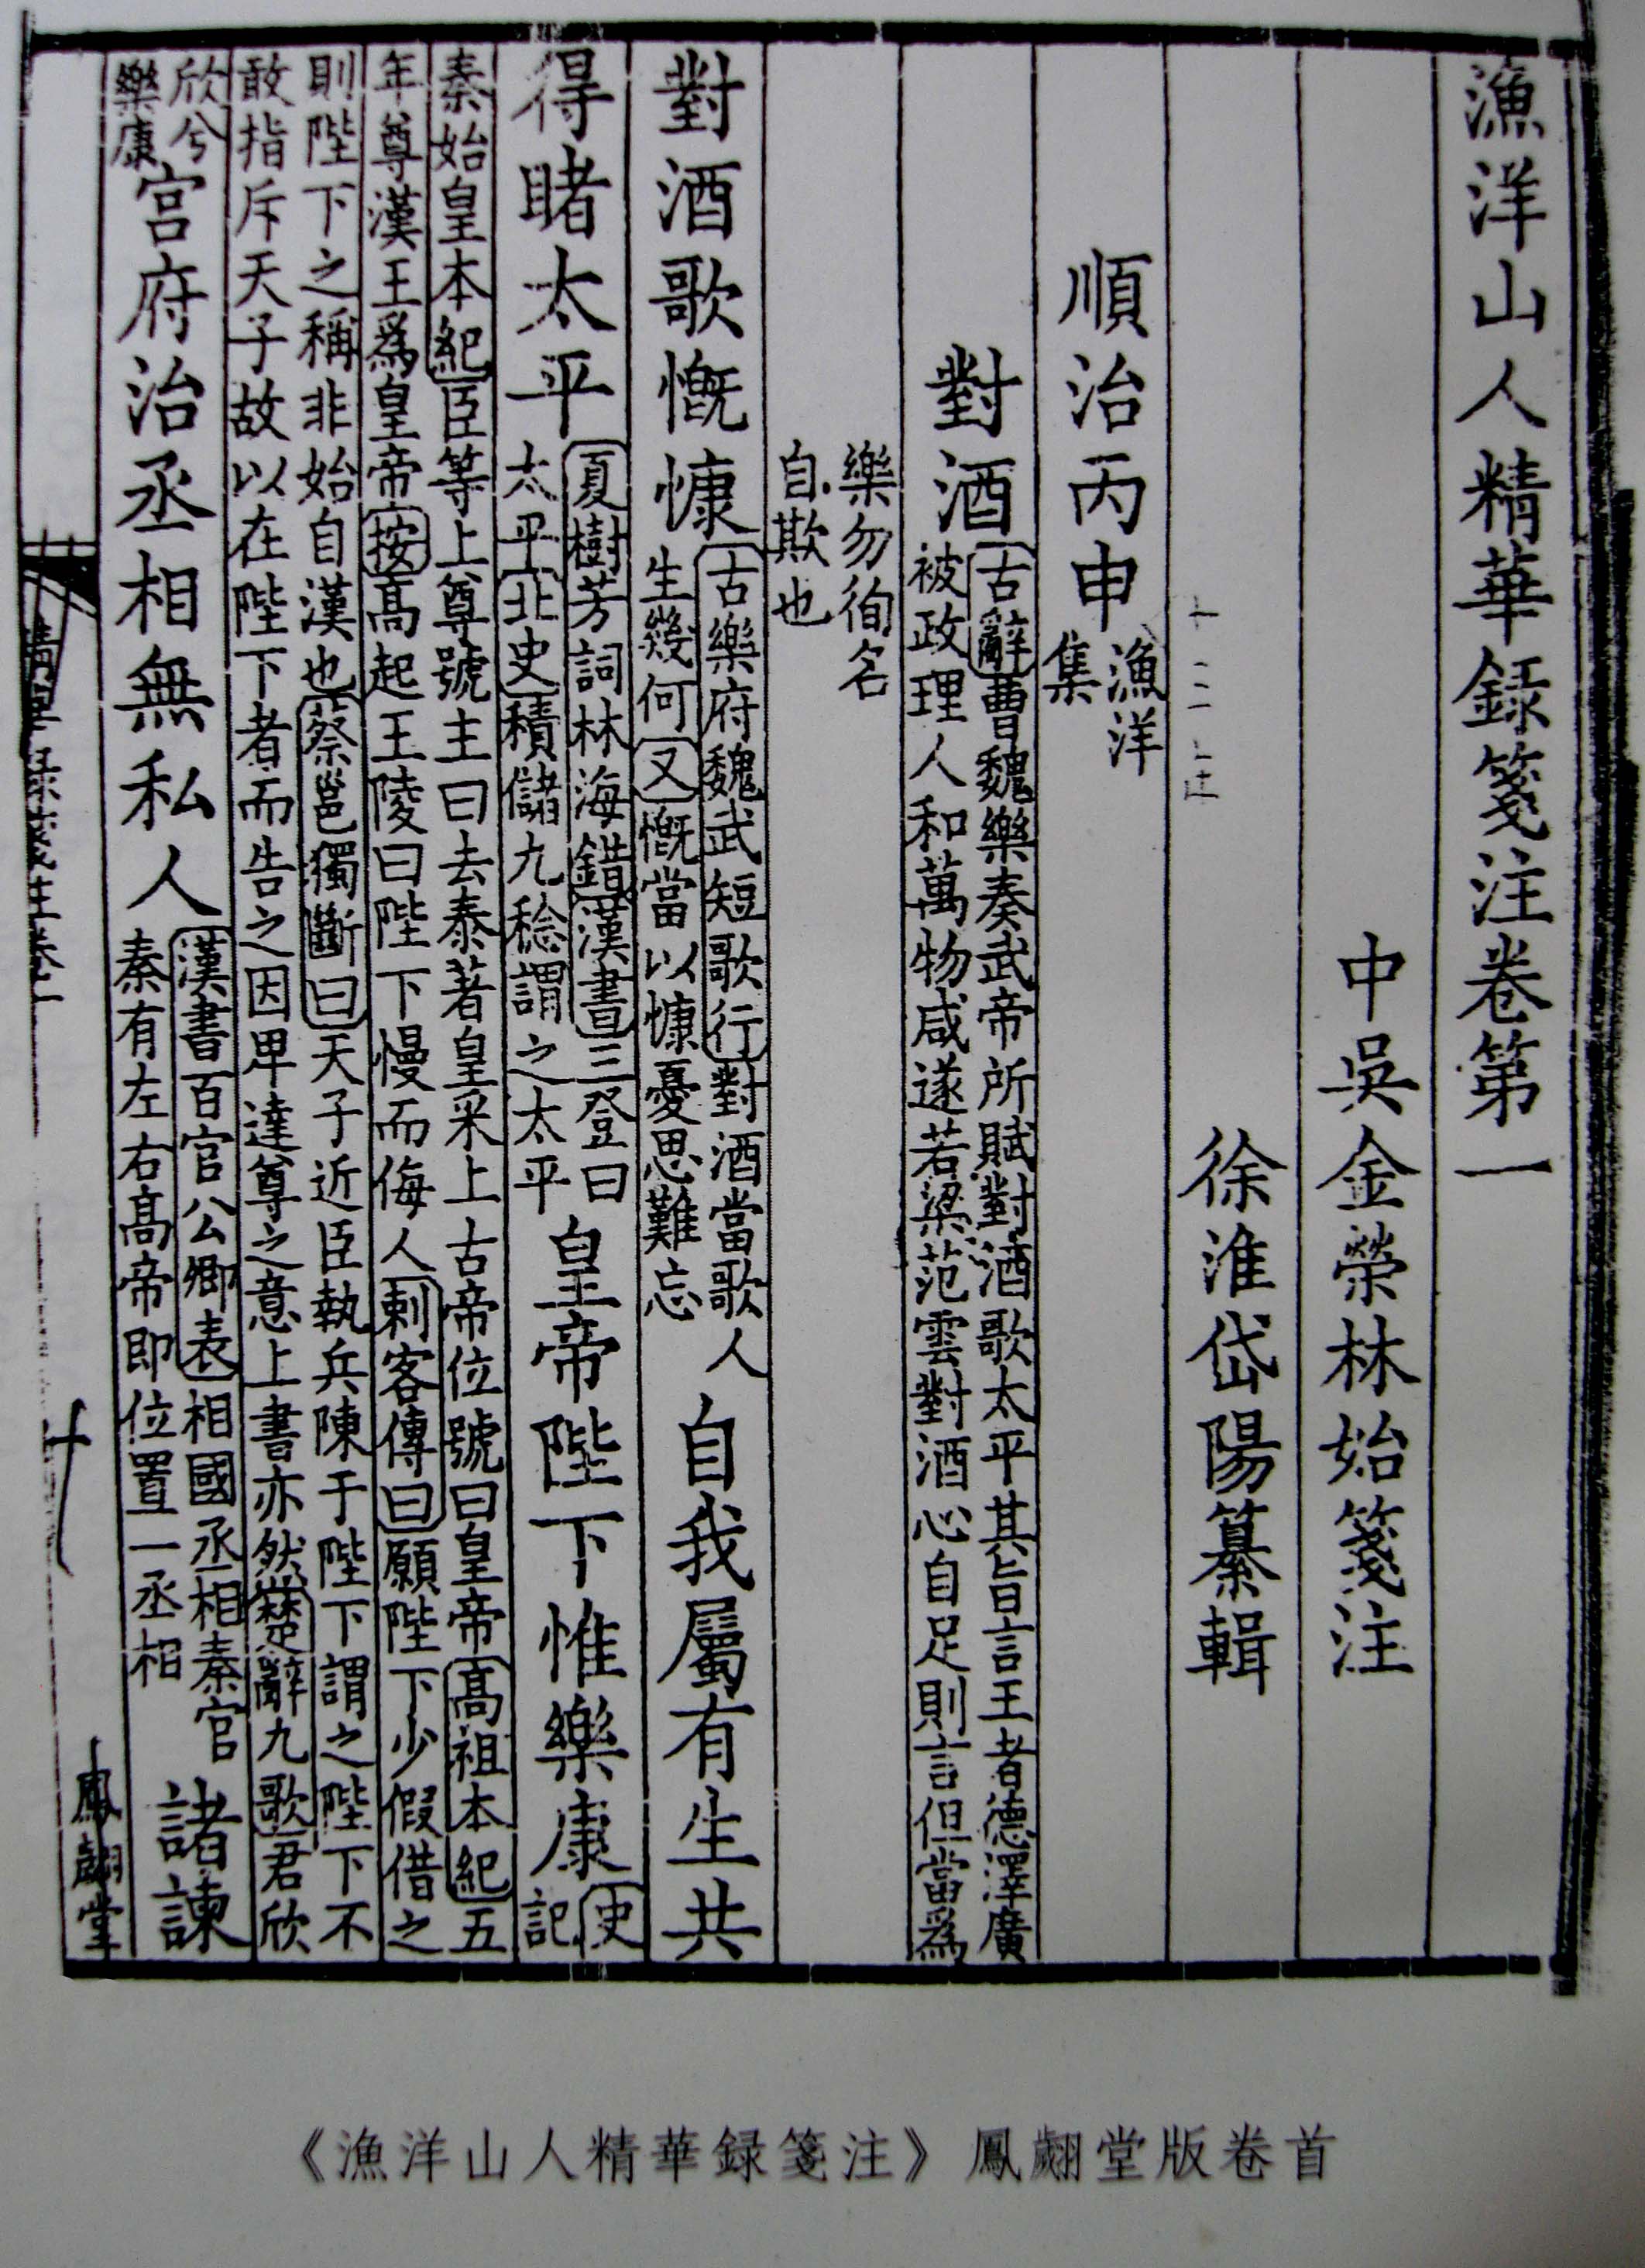 漁洋山人精華録箋注卷第一
中吳金榮林始箋注
徐淮岱陽纂輯
順治丙申
漁洋
集
對酒
古辭曹魏樂奏武帝所賦對酒歌太平其旨言王者德澤廣
被政理人和萬物咸遂若梁范雲對酒心自足則言但當爲
樂勿徇名
自欺也
對酒歌慨慷
古樂府魏武短歌行對酒當歌人
生幾何又慨當以慷憂思難忘
自我屬有生共
得睹太平
夏樹芳詞林海錯漢書三登曰
太平北史積儲九稔謂之太平
皇帝陛下惟樂康
史
記
秦始皇本紀臣等上尊號主曰去泰著皇采上古帝位號曰皇帝高祖本紀五
年尊漢王爲皇帝按高起王陵曰陛下慢而侮人刺客傳曰願陛下少假借之
則陛下之稱非始自漢也蔡邕獨斷曰天子近臣執兵陳于陛下謂之陛下不
敢指斥天子故以在陛下者而告之因卑達尊之意上書亦然楚辭九歌君欣
欣兮
樂康
宮府治丞相無私人
漢書百官公卿表相國丞相秦官
秦有左右高帝即位置一丞相
諸諫
鳳翽堂
《漁洋山人精華録箋注》鳳翽堂版卷首